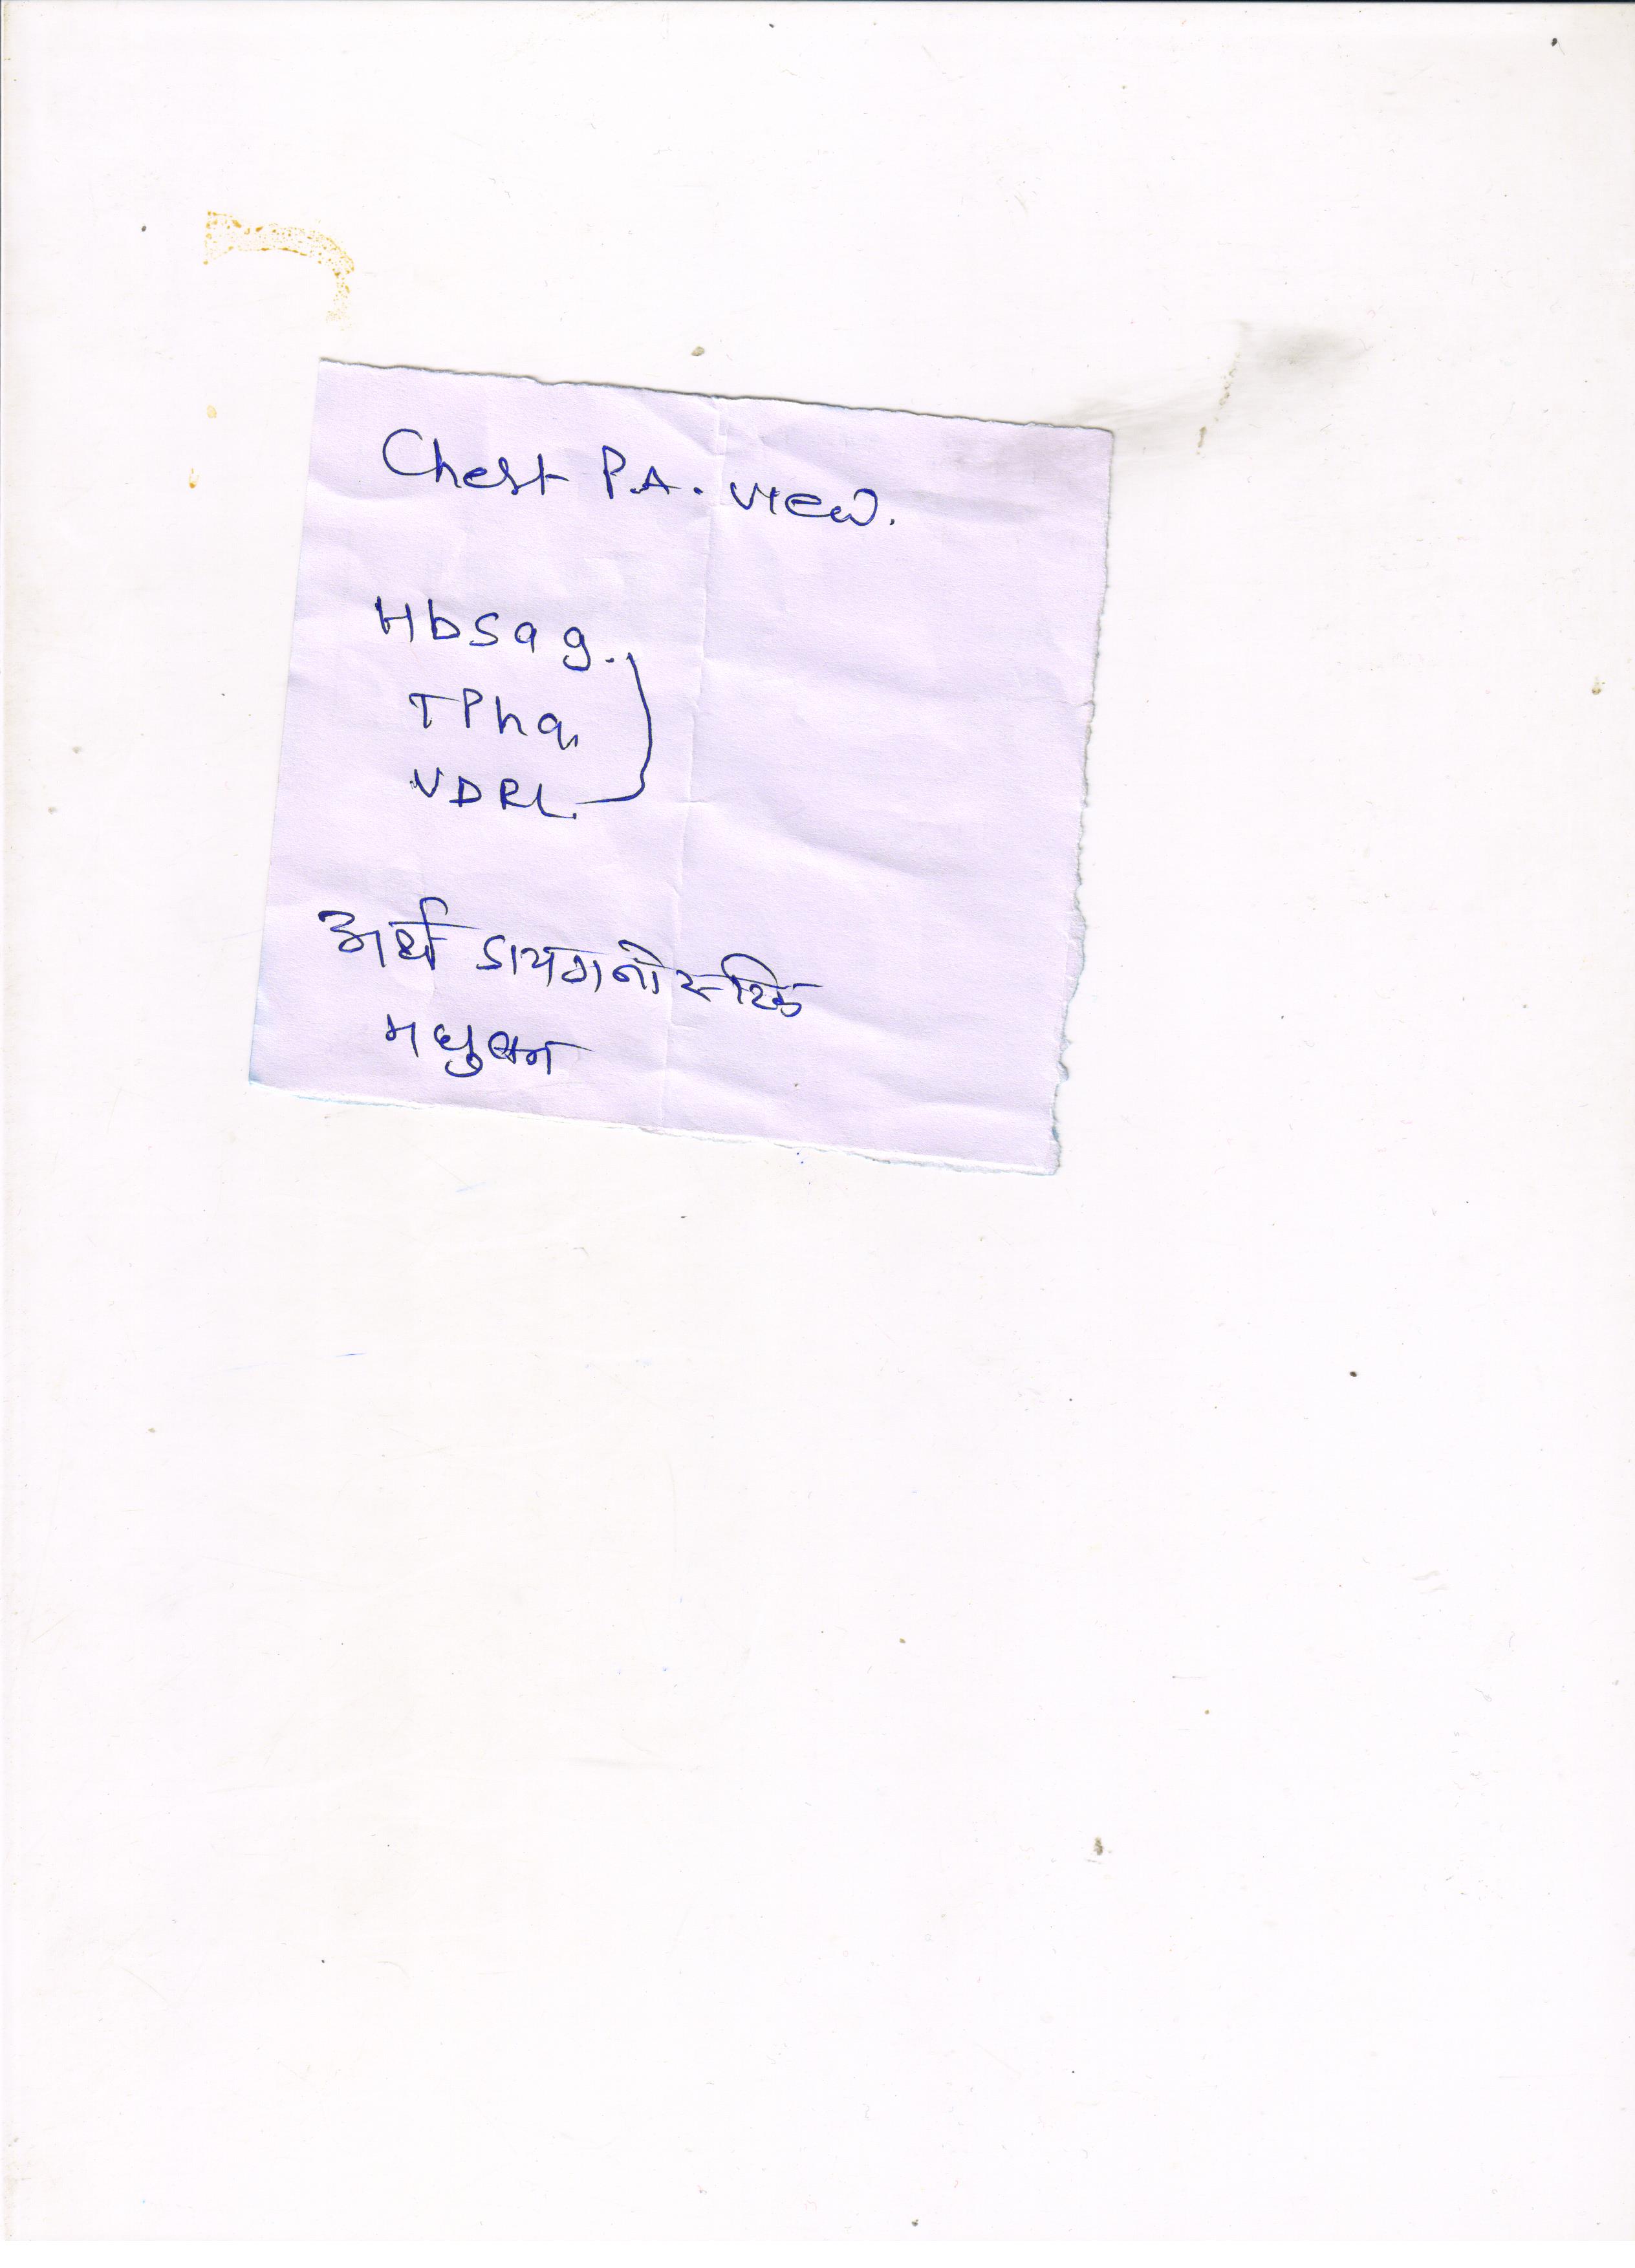 Chest P.A. view.
Hbsag.
TPha.
VDRL.
अर्थ डायगनोस्टिक
मधुबन